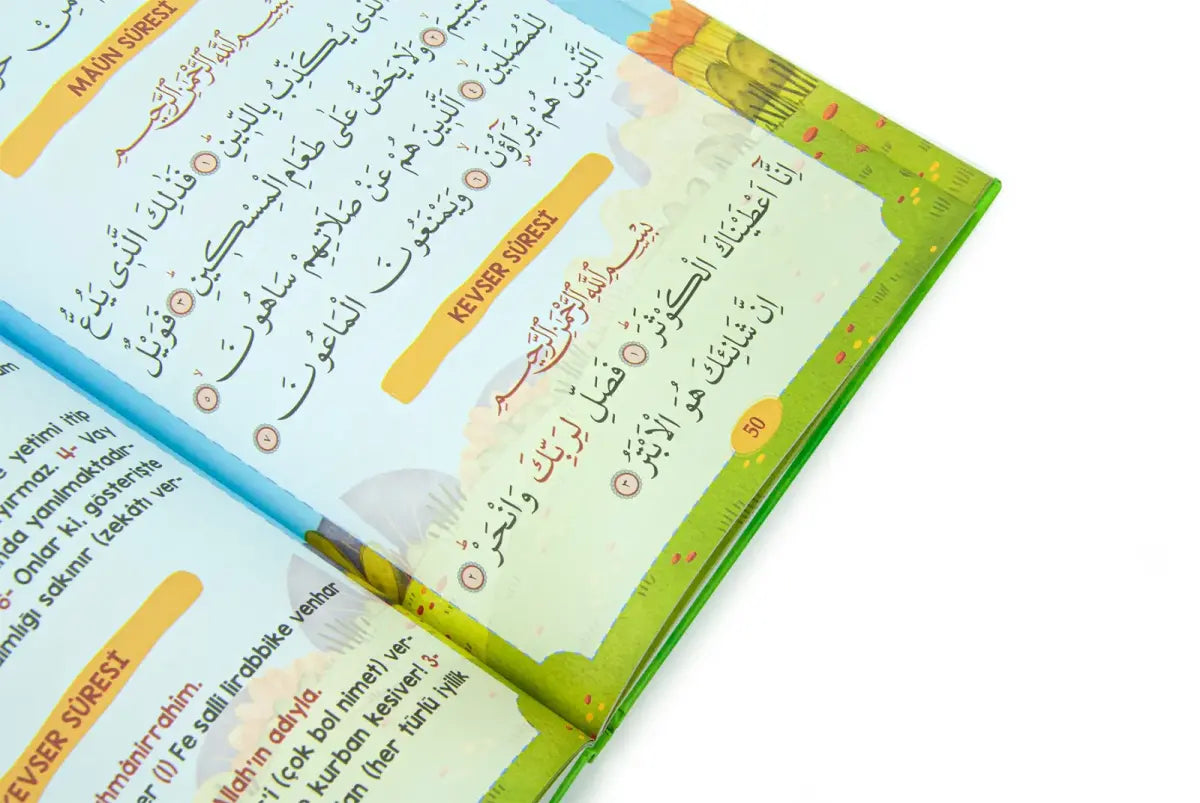 مِنْ
MÂÛN SÛRESİ
بِسْمِ اللّٰهِ الرَّحْمٰنِ الرَّحِيمِ
الَّذِى يُكَذِّبُ بِالدِّينِ ١ فَذٰلِكَ الَّذِى يَدُعُّ
الْيَتِيمَ ٢ وَلَا يَحُضُّ عَلٰى طَعَامِ الْمِسْكِينِ ٣ فَوَيْلٌ
لِلْمُصَلِّينَ ٤ اَلَّذِينَ هُمْ عَنْ صَلَاتِهِمْ سَاهُونَ ٥
اَلَّذِينَ هُمْ يُرَآؤُنَ ٦ وَيَمْنَعُونَ الْمَاعُونَ ٧
KEVSER SÛRESİ
بِسْمِ اللّٰهِ الرَّحْمٰنِ الرَّحِيمِ
اِنَّٓا اَعْطَيْنَاكَ الْكَوْثَرَ ١ فَصَلِّ لِرَبِّكَ وَانْحَرْ ٢
اِنَّ شَانِئَكَ هُوَ الْاَبْتَرُ ٣
50
yetimi itip
yırmaz. 4- Vay
nda yanılmaktadır-
6- Onlar ki, gösterişte
sakınır (zekâtı ver-
KEVSER SÛRESİ
hmânirrahim.
er (1) Fe salli lirabbike venhar
Allah'ın adıyla.
'i (çok bol nimet) ver-
kurban kesiver! 3-
an (her türlü iyilik